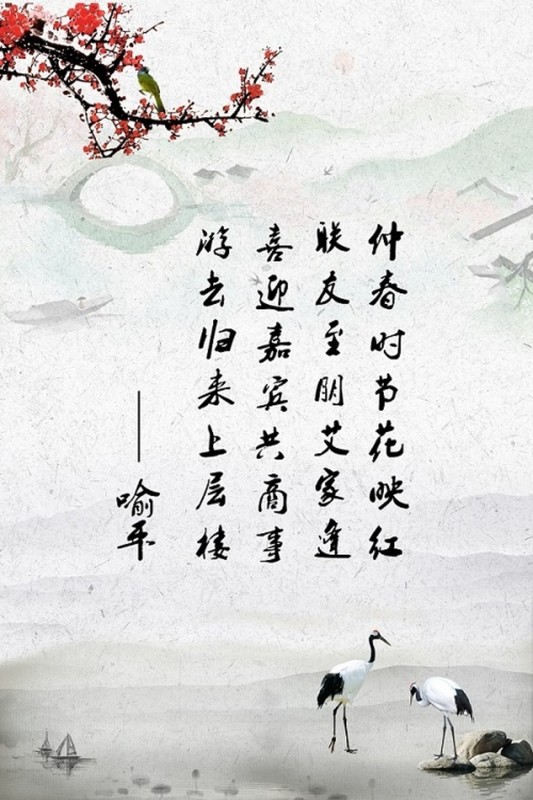 仲春时节花映红
联友至朋艾家逢
喜迎嘉宾共商事
游去归来上层楼
——喻平